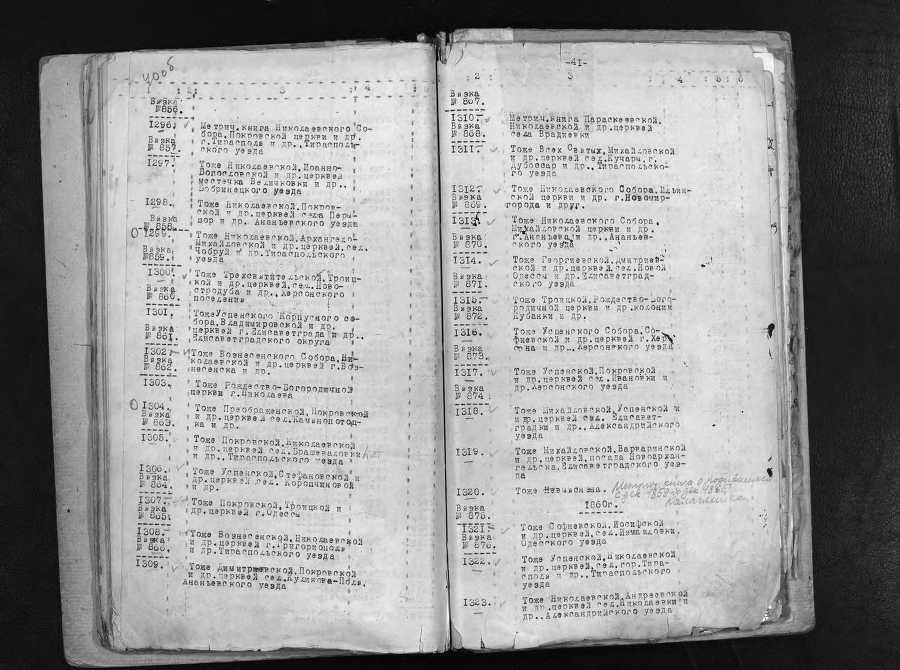 1 2 3 4
Вязка
№ 856.
1296.
Вязка
№ 857.
Метрич.книга Николаевского Со-
бора,Покровской церкви и др.
г.Тирасполя и др.,Тирасполь-
ского уезда
1297.
Тоже Николаевской,Иоанно-
Богословской и др.церквей
местечка Величковки и др.,
Бобринецкого уезда
1298.
Вязка
№ 858.
Тоже Николаевской,Покров-
ской и др.церквей села Перы-
шор и др. Ананьевского уезда
1299.
Вязка
№859.
Тоже Николаевской,Архангело-
Михайловской и др.церквей,сел.
Чобруй и др.Тираспольского
уезда
1300.
Вязка
№ 860.
Тоже Трехсвятительской,Троиц-
кой и др.церквей,сел.Ново-
стродуба и др.,Херсонского
поселения
1301.
Вязка
№ 861.
ТожеУспенского Корпусного со-
бора,Владимировской и др.
церквей г.Елисаветграда и др.,
Елисаветградского округа
1302.
Вязка
№ 862.
Тоже Вознесенского Собора,Ни-
колаевской и др.церквей г.Воз-
несенска и др.
1303.
Тоже Рождество-Богородичной
церкви г.Николаева
1304.
Вязка
№ 863.
Тоже Преображенской,Покровской
и др.церквей сел.Каменопотоц-
ка и др.
1305.
Тоже Покровской,Николаевской
и др.церквей сел.Брашеваловки
и др.,Тираспольского уезда
1306.
Вязка
№ 864.
Тоже Успенской,Стефановской и
др.церквей,сел. Коропчиновой
и др.
1307.
Вязка
№ 865.
Тоже Покровской,Троицкой и
др.церквей г.Одессы
1308.
Вязка
№ 866.
Тоже Вознесенской,Николаевской
и др.церквей г.Григориополя
и др.Тираспольского уезда
1309.
Тоже Димитриевской,Покровской
и др.церквей сел.Куликова-Поля,
Ананьевского уезда
-41-
2 3 4 5 6
Вязка
№ 867.
1310.
Вязка
№ 868.
Метрич.книга Параскеевской,
Николаевской и др.церквей
села Врадиевки
1311.
Тоже Всех Святых,Михайловской
и др.церквей сел.Кучары,г.
Дубоссар и др., Тираспольско-
го уезда
1312.
Вязка
№ 869.
Тоже Николаевского Собора,Ильин-
ской церкви и др. г.Новомир-
города и друг.
1313.
Вязка
№ 870.
Тоже Николаевского Собора,
Михайловской церкви и др.
г.Ананьева и др., Ананьев-
ского уезда
1314.
Вязка
№ 871.
Тоже Георгиевской,Дмитриев-
ской и др.церквей,сел.Новой
Одессы и др.Елисаветград-
ского уезда
1315.
Вязка
№ 872.
Тоже Троицкой,Рождество-Бого-
родичной церкви и др.колонии
Кубанки и др.
1316.
Вязка
№ 873.
Тоже Успенского Собора,Со-
фиевской и др.церквей г.Хер-
сона и др., Херсонского уезда
1317.
Вязка
№ 874.
Тоже Успенской,Покровской
и др.церквей сел.Ивановки и
др.Херсонского уезда
1318.
Тоже Михайловской,Успенской и
и др.церквей сел. Елисавет-
градки и др.,Александрийского
уезда
1319.
Тоже Михайловской,Варваринской
и др.церквей,посада Новоархан-
гельска,Елисаветградского уез-
да
1320.
Вязка
№ 875.
Тоже
1860г.
1321.
Вязка
№ 876.
Тоже Софиевской,Иосифской
и др.церквей,сел.Измаиловки,
Одесского уезда
1322.
Тоже Успенской,Николаевской
и др.церквей,сел.гор.Тира-
споля и др.,Тираспольского
уезда
1323.
Тоже Николаевской,Андреевской
и др.церквей сел.Николаевки и
др.,Александрийского уезда